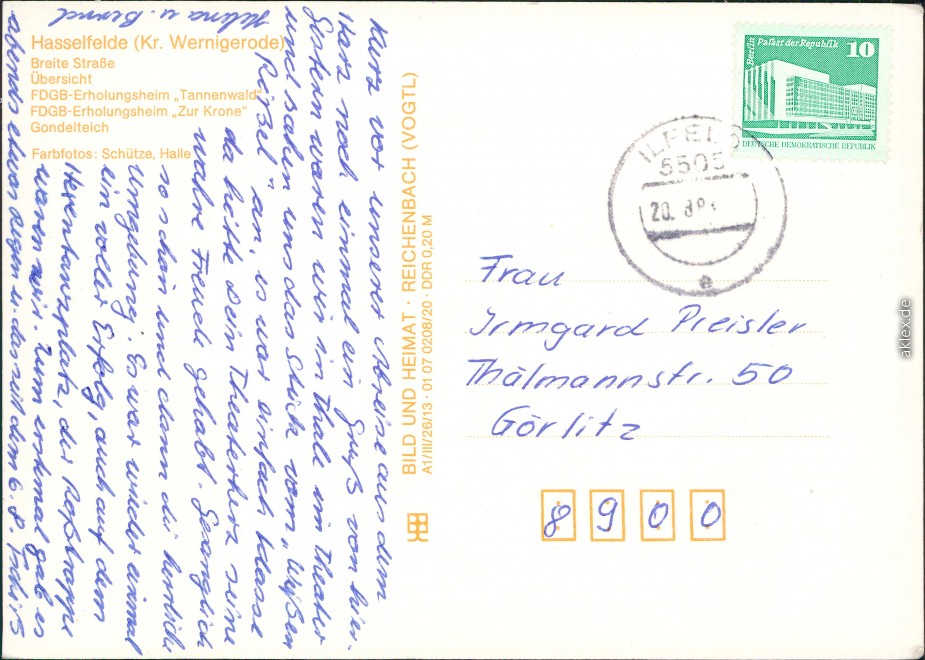 Hasselfelde (Kr. Wernigerode)
Breite Straße
Übersicht
FDGB-Erholungsheim „Tannenwald"
FDGB-Erholungsheim „Zur Krone"
Gondelteich
Farbfotos: Schütze, Halle
Kurz vor unserer Abreise aus dem
Harz noch einmal ein Gruß von hier.
Gestern waren wir in Thale im Theater
und sahen uns das Stück vom „Weißen
Rößel" an, es war einfach klasse
da hätte Dein Theaterherz seine
wahre Freude gehabt. Gesanglich
so schön und dann die herrliche
Umgebung. Es war wieder einmal
ein voller Erfolg, auch auf dem
Hexentanzplatz, der Roßtrappe
waren wir. Zum erstenmal gab es
abends etwas Regen u. das seit dem 6.8. Tschüß
Helma u. Bernd
BILD UND HEIMAT · REICHENBACH (VOGTL)
A1/III/26/13 · 01 07 0208/20 · DDR 0,20 M
Berlin Palast der Republik 10
DEUTSCHE DEMOKRATISCHE REPUBLIK
ILFELD
5505
20. 8.8
e
Frau
Irmgard Preisler
Thälmannstr. 50
Görlitz
8900
aklex.de